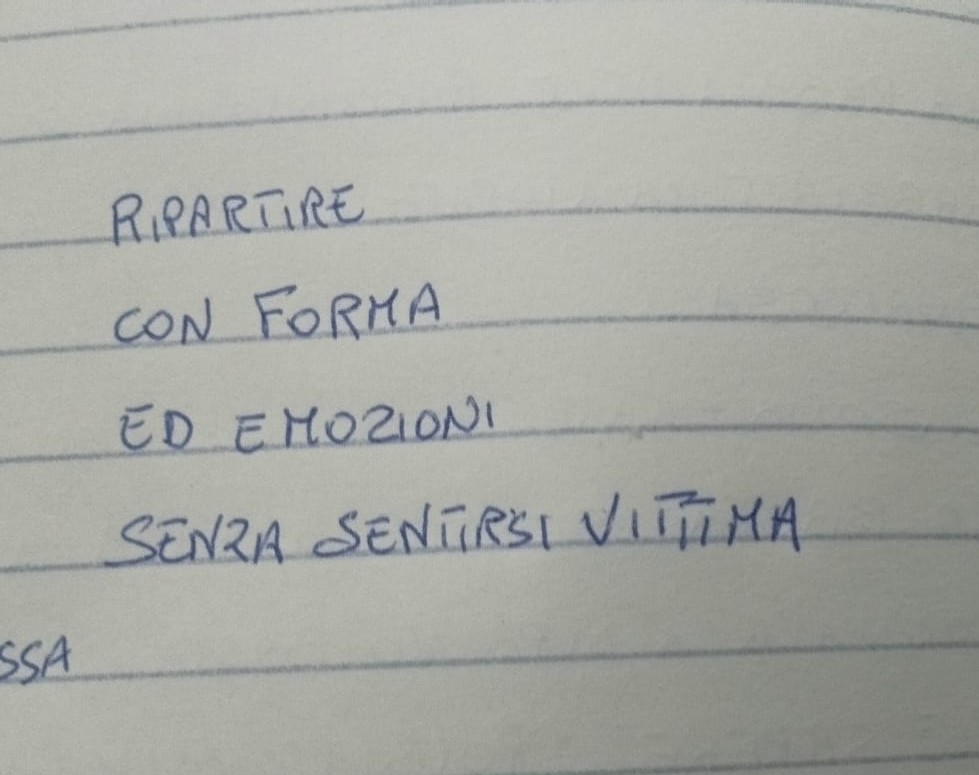 RIPARTIRE
CON FORMA
ED EMOZIONI
SENZA SENTIRSI VITTIMA
SSA